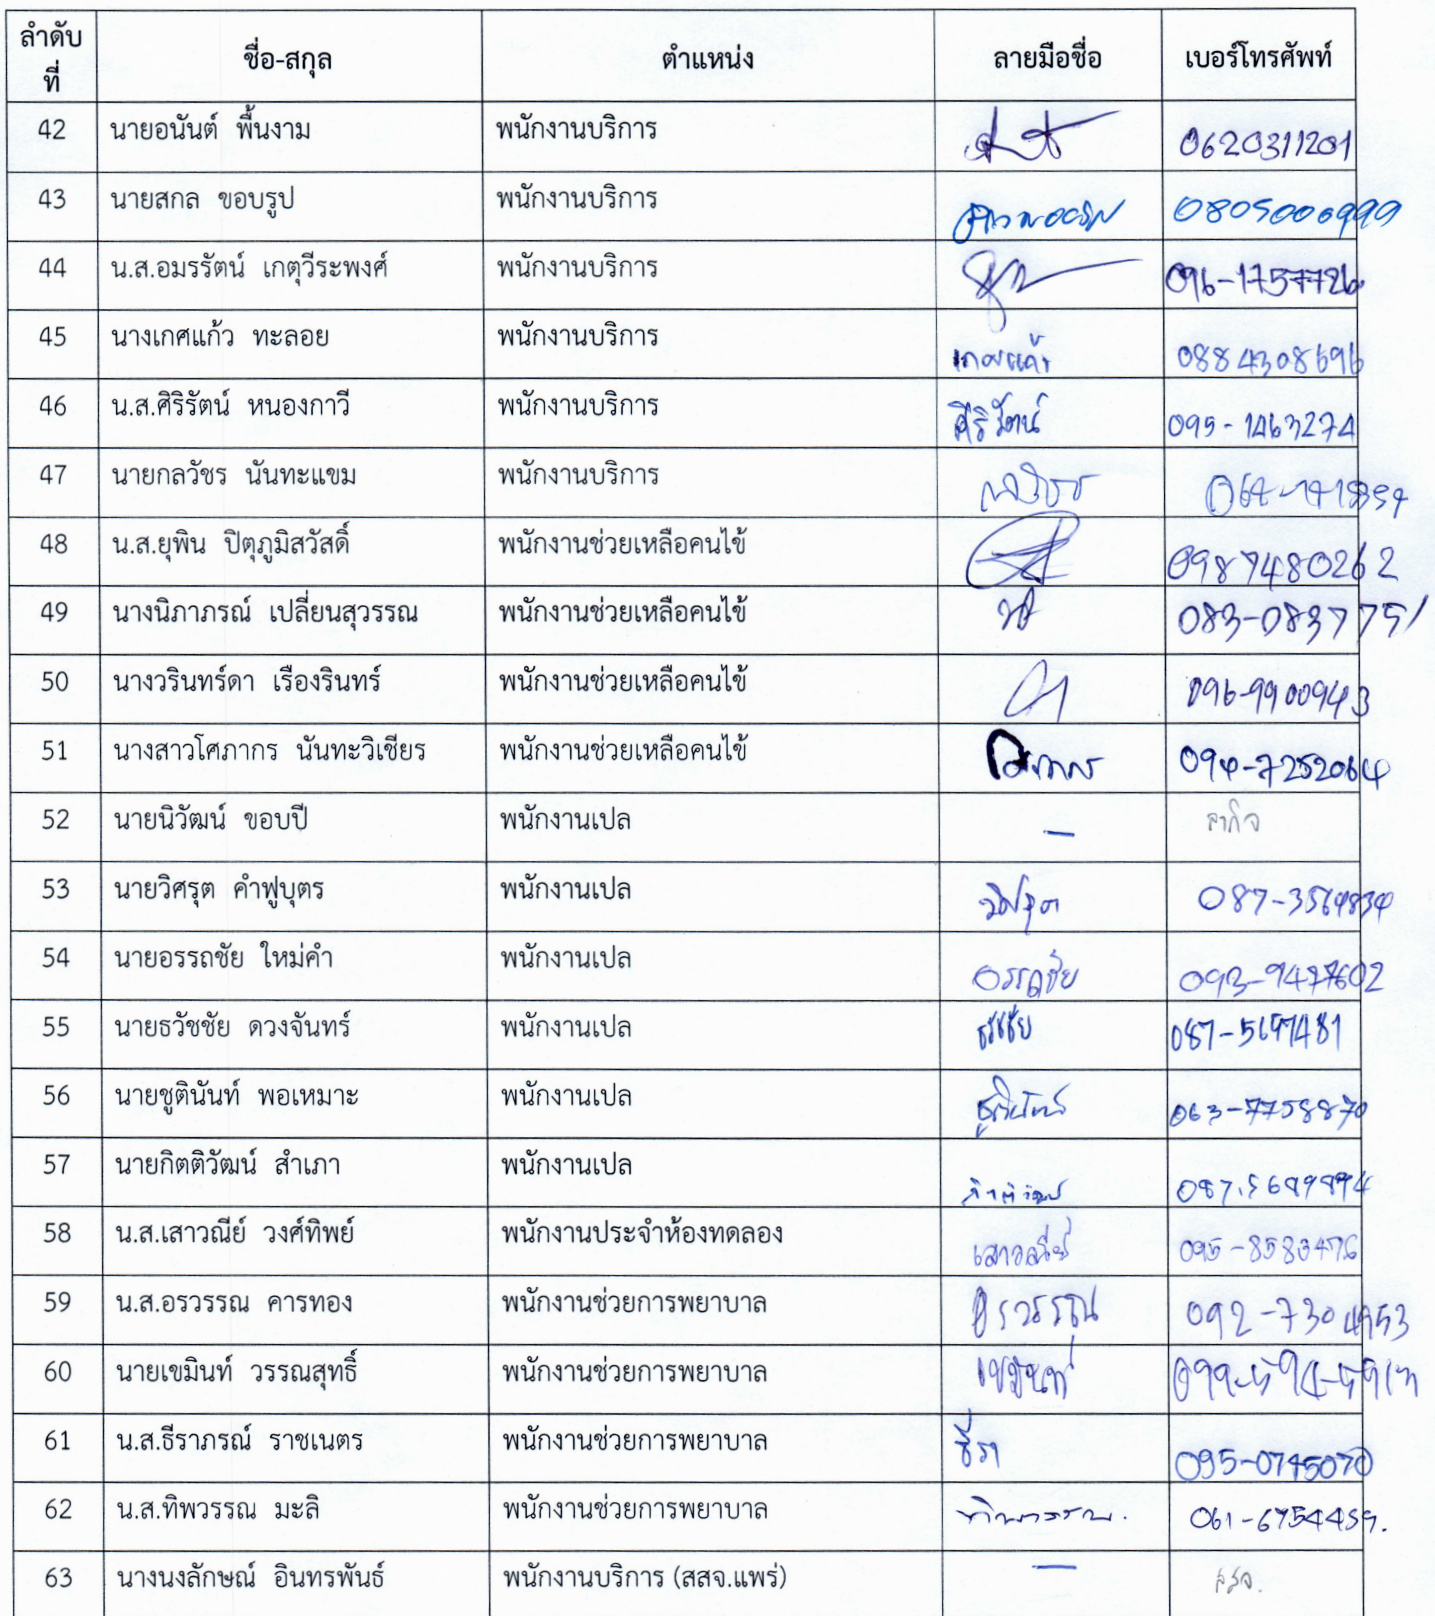 ลำดับที่ ชื่อ-สกุล ตำแหน่ง ลายมือชื่อ เบอร์โทรศัพท์
42 นายอนันต์ พื้นงาม พนักงานบริการ 0620311201
43 นายสกล ขอบรูป พนักงานบริการ 0805006999
44 น.ส.อมรรัตน์ เกตุวีระพงศ์ พนักงานบริการ 096-1757726
45 นางเกศแก้ว ทะลอย พนักงานบริการ เกศแก้ว 0884308696
46 น.ส.ศิริรัตน์ หนองกาวี พนักงานบริการ ศิริรัตน์ 095-1463274
47 นายกลวัชร นันทะแขม พนักงานบริการ กลวัชร
48 น.ส.ยุพิน ปิตุภูมิสวัสดิ์ พนักงานช่วยเหลือคนไข้ 0987480262
49 นางนิภาภรณ์ เปลี่ยนสุวรรณ พนักงานช่วยเหลือคนไข้ 083-0837751
50 นางวรินทร์ดา เรืองรินทร์ พนักงานช่วยเหลือคนไข้ 096-9900943
51 นางสาวโศภากร นันทะวิเชียร พนักงานช่วยเหลือคนไข้ โศภากร 094-7252064
52 นายนิวัฒน์ ขอบปี พนักงานเปล — ลากิจ
53 นายวิศรุต คำฟูบุตร พนักงานเปล วิศรุต 087-3564834
54 นายอรรถชัย ใหม่คำ พนักงานเปล อรรถชัย 093-9477602
55 นายธวัชชัย ดวงจันทร์ พนักงานเปล ธวัชชัย 087-5697481
56 นายชูตินันท์ พอเหมาะ พนักงานเปล ชูตินันท์ 063-7758870
57 นายกิตติวัฒน์ สำเภา พนักงานเปล กิตติวัฒน์ 087.5689894
58 น.ส.เสาวณีย์ วงศ์ทิพย์ พนักงานประจำห้องทดลอง เสาวณีย์ 095-8583476
59 น.ส.อรวรรณ คารทอง พนักงานช่วยการพยาบาล อรวรรณ 092-7304953
60 นายเขมินท์ วรรณสุทธิ์ พนักงานช่วยการพยาบาล เขมินท์
61 น.ส.ธีราภรณ์ ราชเนตร พนักงานช่วยการพยาบาล ธีรา 095-0745070
62 น.ส.ทิพวรรณ มะลิ พนักงานช่วยการพยาบาล ทิพวรรณ. 061-6754459.
63 นางนงลักษณ์ อินทรพันธ์ พนักงานบริการ (สสจ.แพร่) — สสจ.